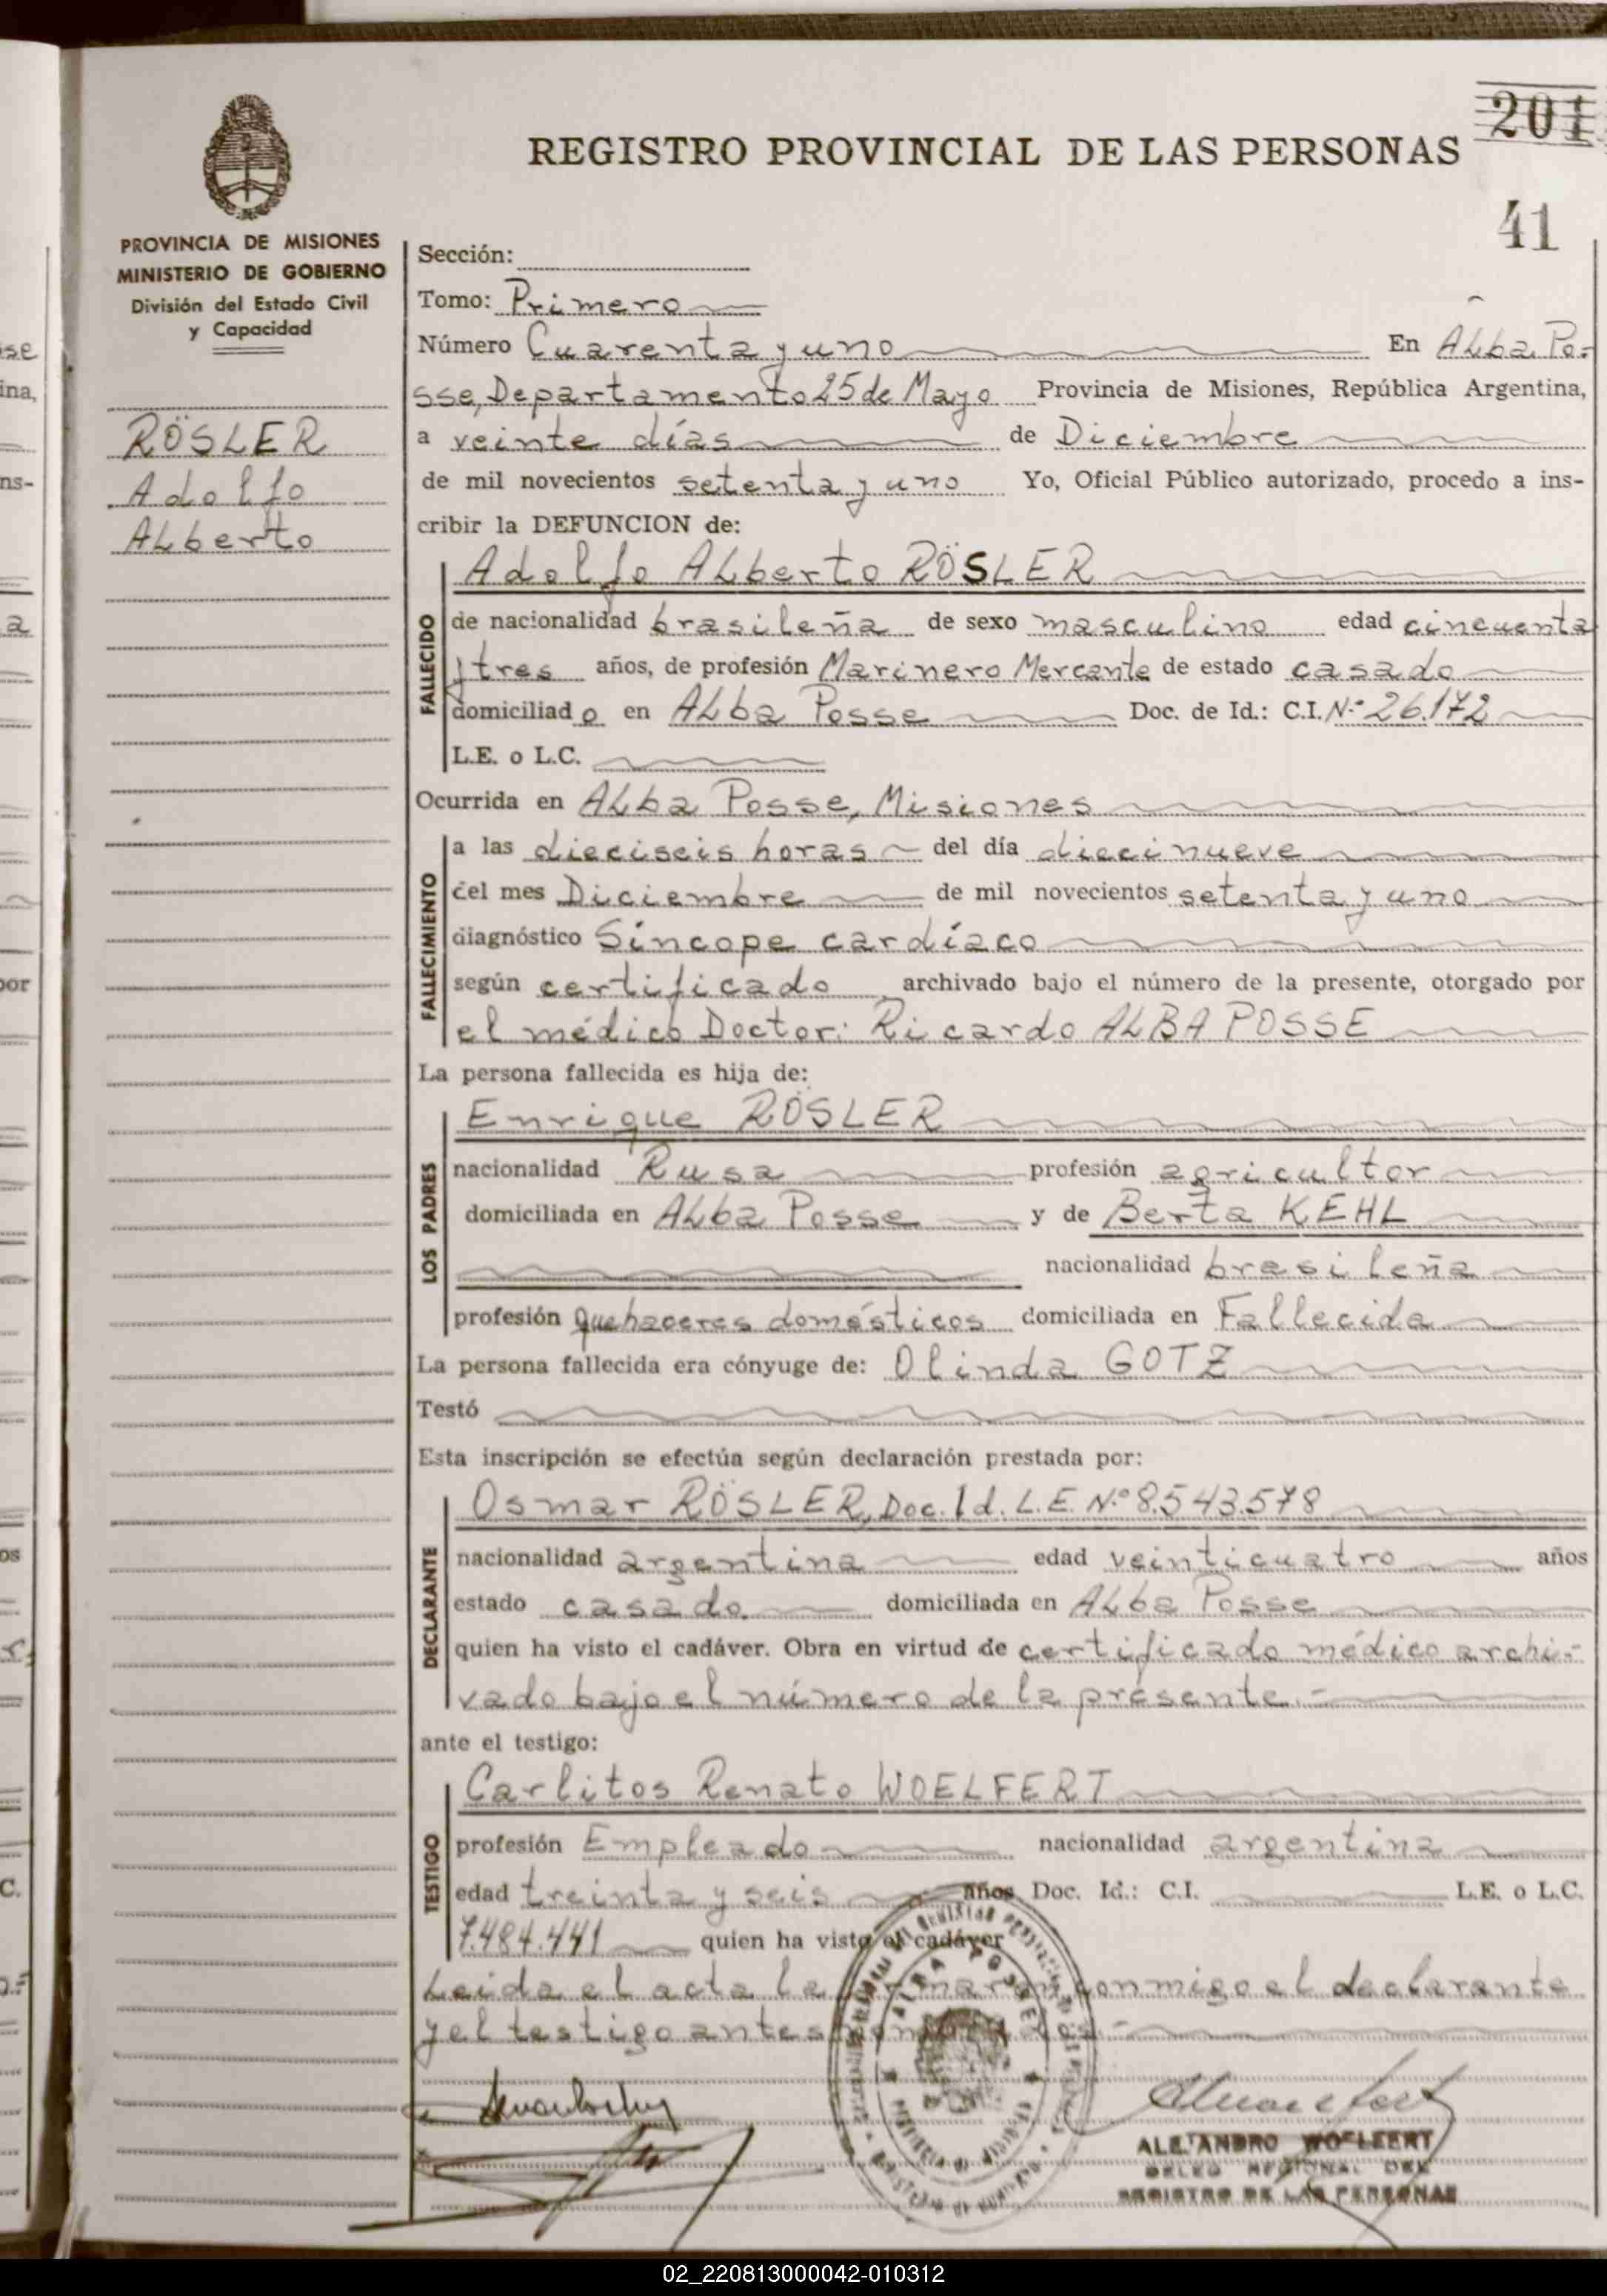 201
REGISTRO PROVINCIAL DE LAS PERSONAS
41
PROVINCIA DE MISIONES
MINISTERIO DE GOBIERNO
División del Estado Civil
y Capacidad
RÖSLER
Adolfo
Alberto
Sección:
Tomo: Primero
Número Cuarenta y uno En Alba Po-
sse, Departamento 25 de Mayo Provincia de Misiones, República Argentina,
a veinte días de Diciembre
de mil novecientos setenta y uno Yo, Oficial Público autorizado, procedo a ins-
cribir la DEFUNCION de:
FALLECIDO
Adolfo Alberto RÖSLER
de nacionalidad brasileña de sexo masculino edad cincuenta
y tres años, de profesión Marinero Mercante de estado casado
domiciliado en Alba Posse Doc. de Id.: C.I. N.º 26.172
L.E. o L.C.
Ocurrida en Alba Posse, Misiones
FALLECIMIENTO
a las dieciseis horas del día diecinueve
del mes Diciembre de mil novecientos setenta y uno
diagnóstico Síncope cardíaco
según certificado archivado bajo el número de la presente, otorgado por
el médico Doctor: Ricardo ALBA POSSE
La persona fallecida es hija de:
LOS PADRES
Enrique RÖSLER
nacionalidad Rusa profesión agricultor
domiciliada en Alba Posse y de Berta KEHL
nacionalidad brasileña
profesión quehaceres domésticos domiciliada en Fallecida
La persona fallecida era cónyuge de: Olinda GOTZ
Testó
Esta inscripción se efectúa según declaración prestada por:
DECLARANTE
Osmar RÖSLER, Doc. Id. L.E. N.º 8.543.578
nacionalidad argentina edad veinticuatro años
estado casado domiciliada en Alba Posse
quien ha visto el cadáver. Obra en virtud de certificado médico archi-
vado bajo el número de la presente.-
ante el testigo:
TESTIGO
Carlitos Renato WOELFERT
profesión Empleado nacionalidad argentina
edad treinta y seis años Doc. Id.: C.I. L.E. o L.C.
7.484.441 quien ha visto el cadáver
Leida el acta la firmaron conmigo el declarante
y el testigo antes mencionados.-
ALEJANDRO WOELFERT
DELEG REGIONAL DEL
REGISTRO DE LAS PERSONAS
02_220813000042-010312